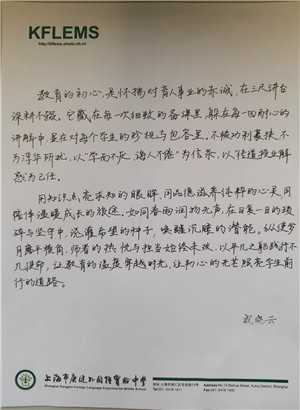 KFLEMS
http://kflems.xhedu.sh.cn
教育的初心，是怀揣对育人事业的赤诚，在三尺讲台
深耕不辍。它藏在每一次细致的备课里，躲在每一回耐心的
讲解中，显在对每个学生的珍视与包容里。不被功利裹挟，不
为浮华所扰，以“学而不厌，诲人不倦”为信条，以“传道授业解
惑”为己任。
用知识点亮求知的眼眸，用品德滋养纯粹的心灵，用
陪伴温暖成长的旅途。如同春雨润物无声，在日复一日的琐
碎与坚守中，浇灌希望的种子，唤醒沉睡的潜能。纵使岁
月磨平棱角，师者的热忱与担当始终未改，以平凡之躯践行不
凡使命，让教育的温度穿越时光，让初心的光芒照亮学生前
行的道路。
晓云
上海市康健外国语实验中学
Shanghai Kangjian Foreign Language Experimental Middle School